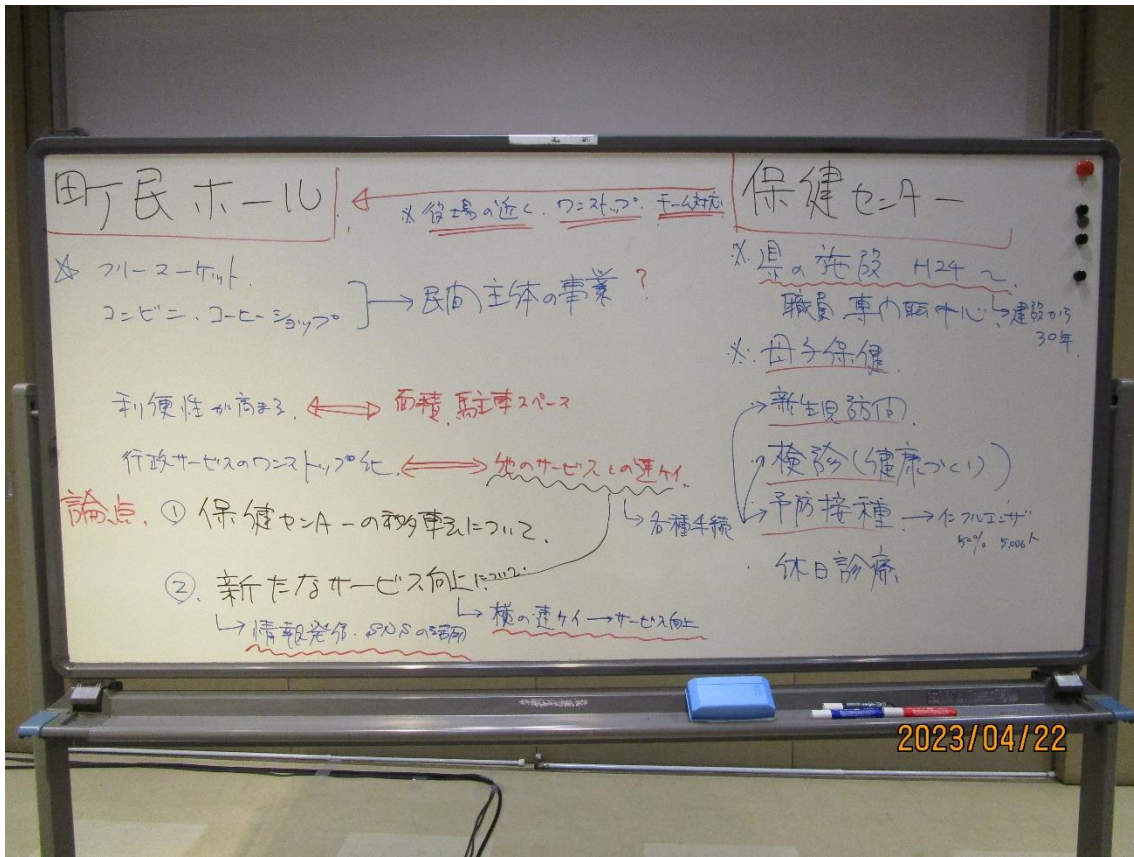 町民ホール
※役場の近く、ワンストップ、チーム対応
保健センター
☆ フリーマーケット
コンビニ、コーヒーショップ
→ 民間主体の事業？
利便性が高まる ⇔ 面積、駐車スペース
行政サービスのワンストップ化 ⇔ 他のサービスとの連ケイ
↳ 各種手続
論点、① 保健センターの移転について
②. 新たなサービス向上について
↳ 情報発信・SNSの活用
↳ 横の連ケイ→サービス向上
※ 県の施設 H24～
職員 専門職中心
↳建設から
30年
※ 母子保健
新生児訪問
検診(健康づくり)
予防接種 → インフルエンザ
50%
・休日診療
2023/04/22